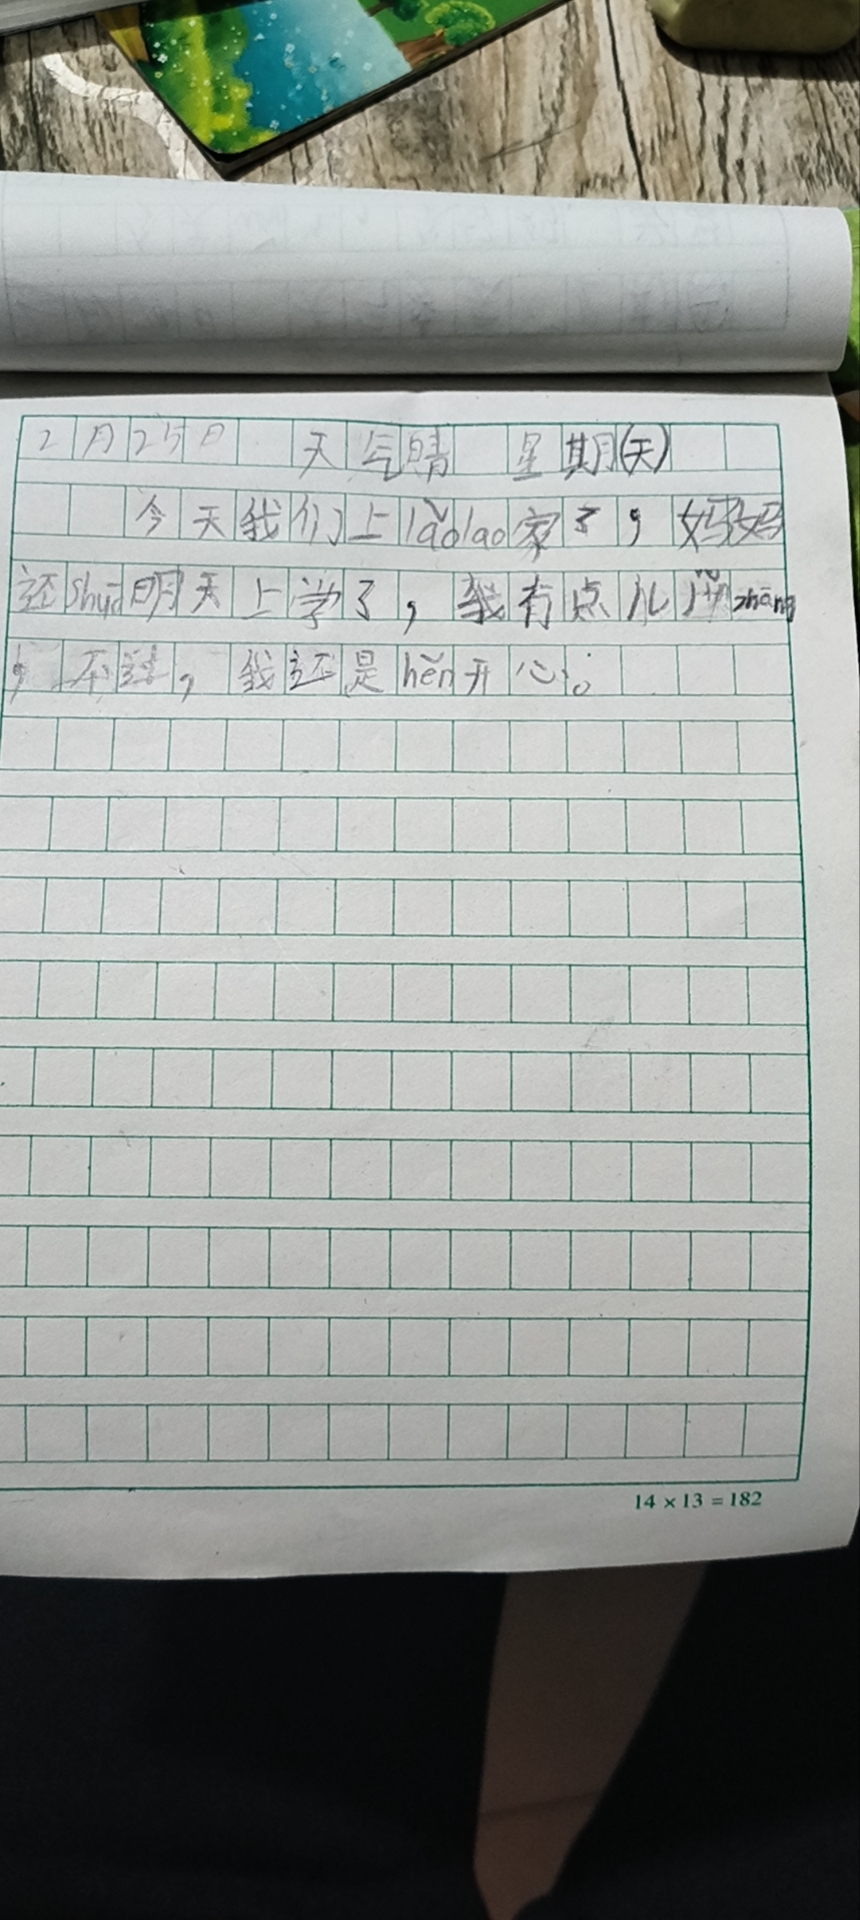 2月25日 天气晴 星期(天)
今天我们上lǎolao家了，妈妈
还shuō明天上学了，我有点儿 zhāng
，不过，我还是hěn开心。
14 × 13 = 182